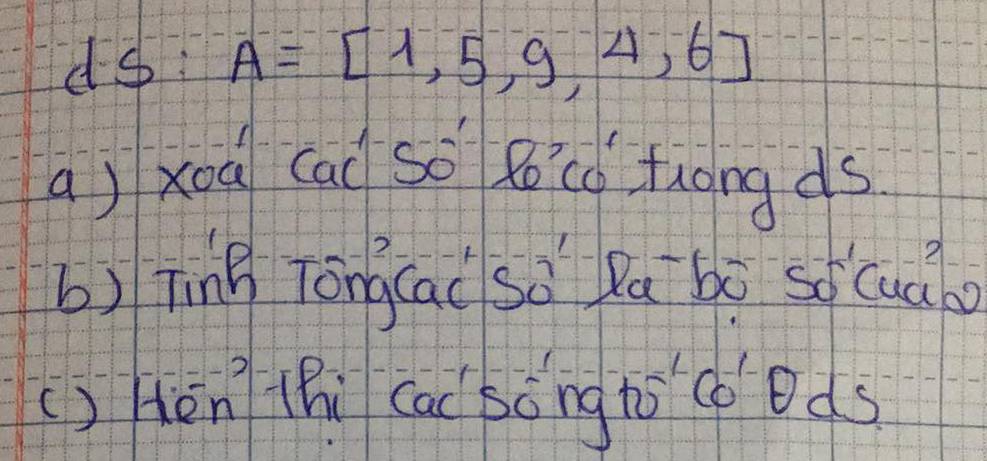 ds: A = [1, 5, 9, 4, 6]
a) xoá các số lẻ có trong ds.
b) Tính Tổng các số là bộ số của 2
c) Hiển thị các số ngtố có ở ds.